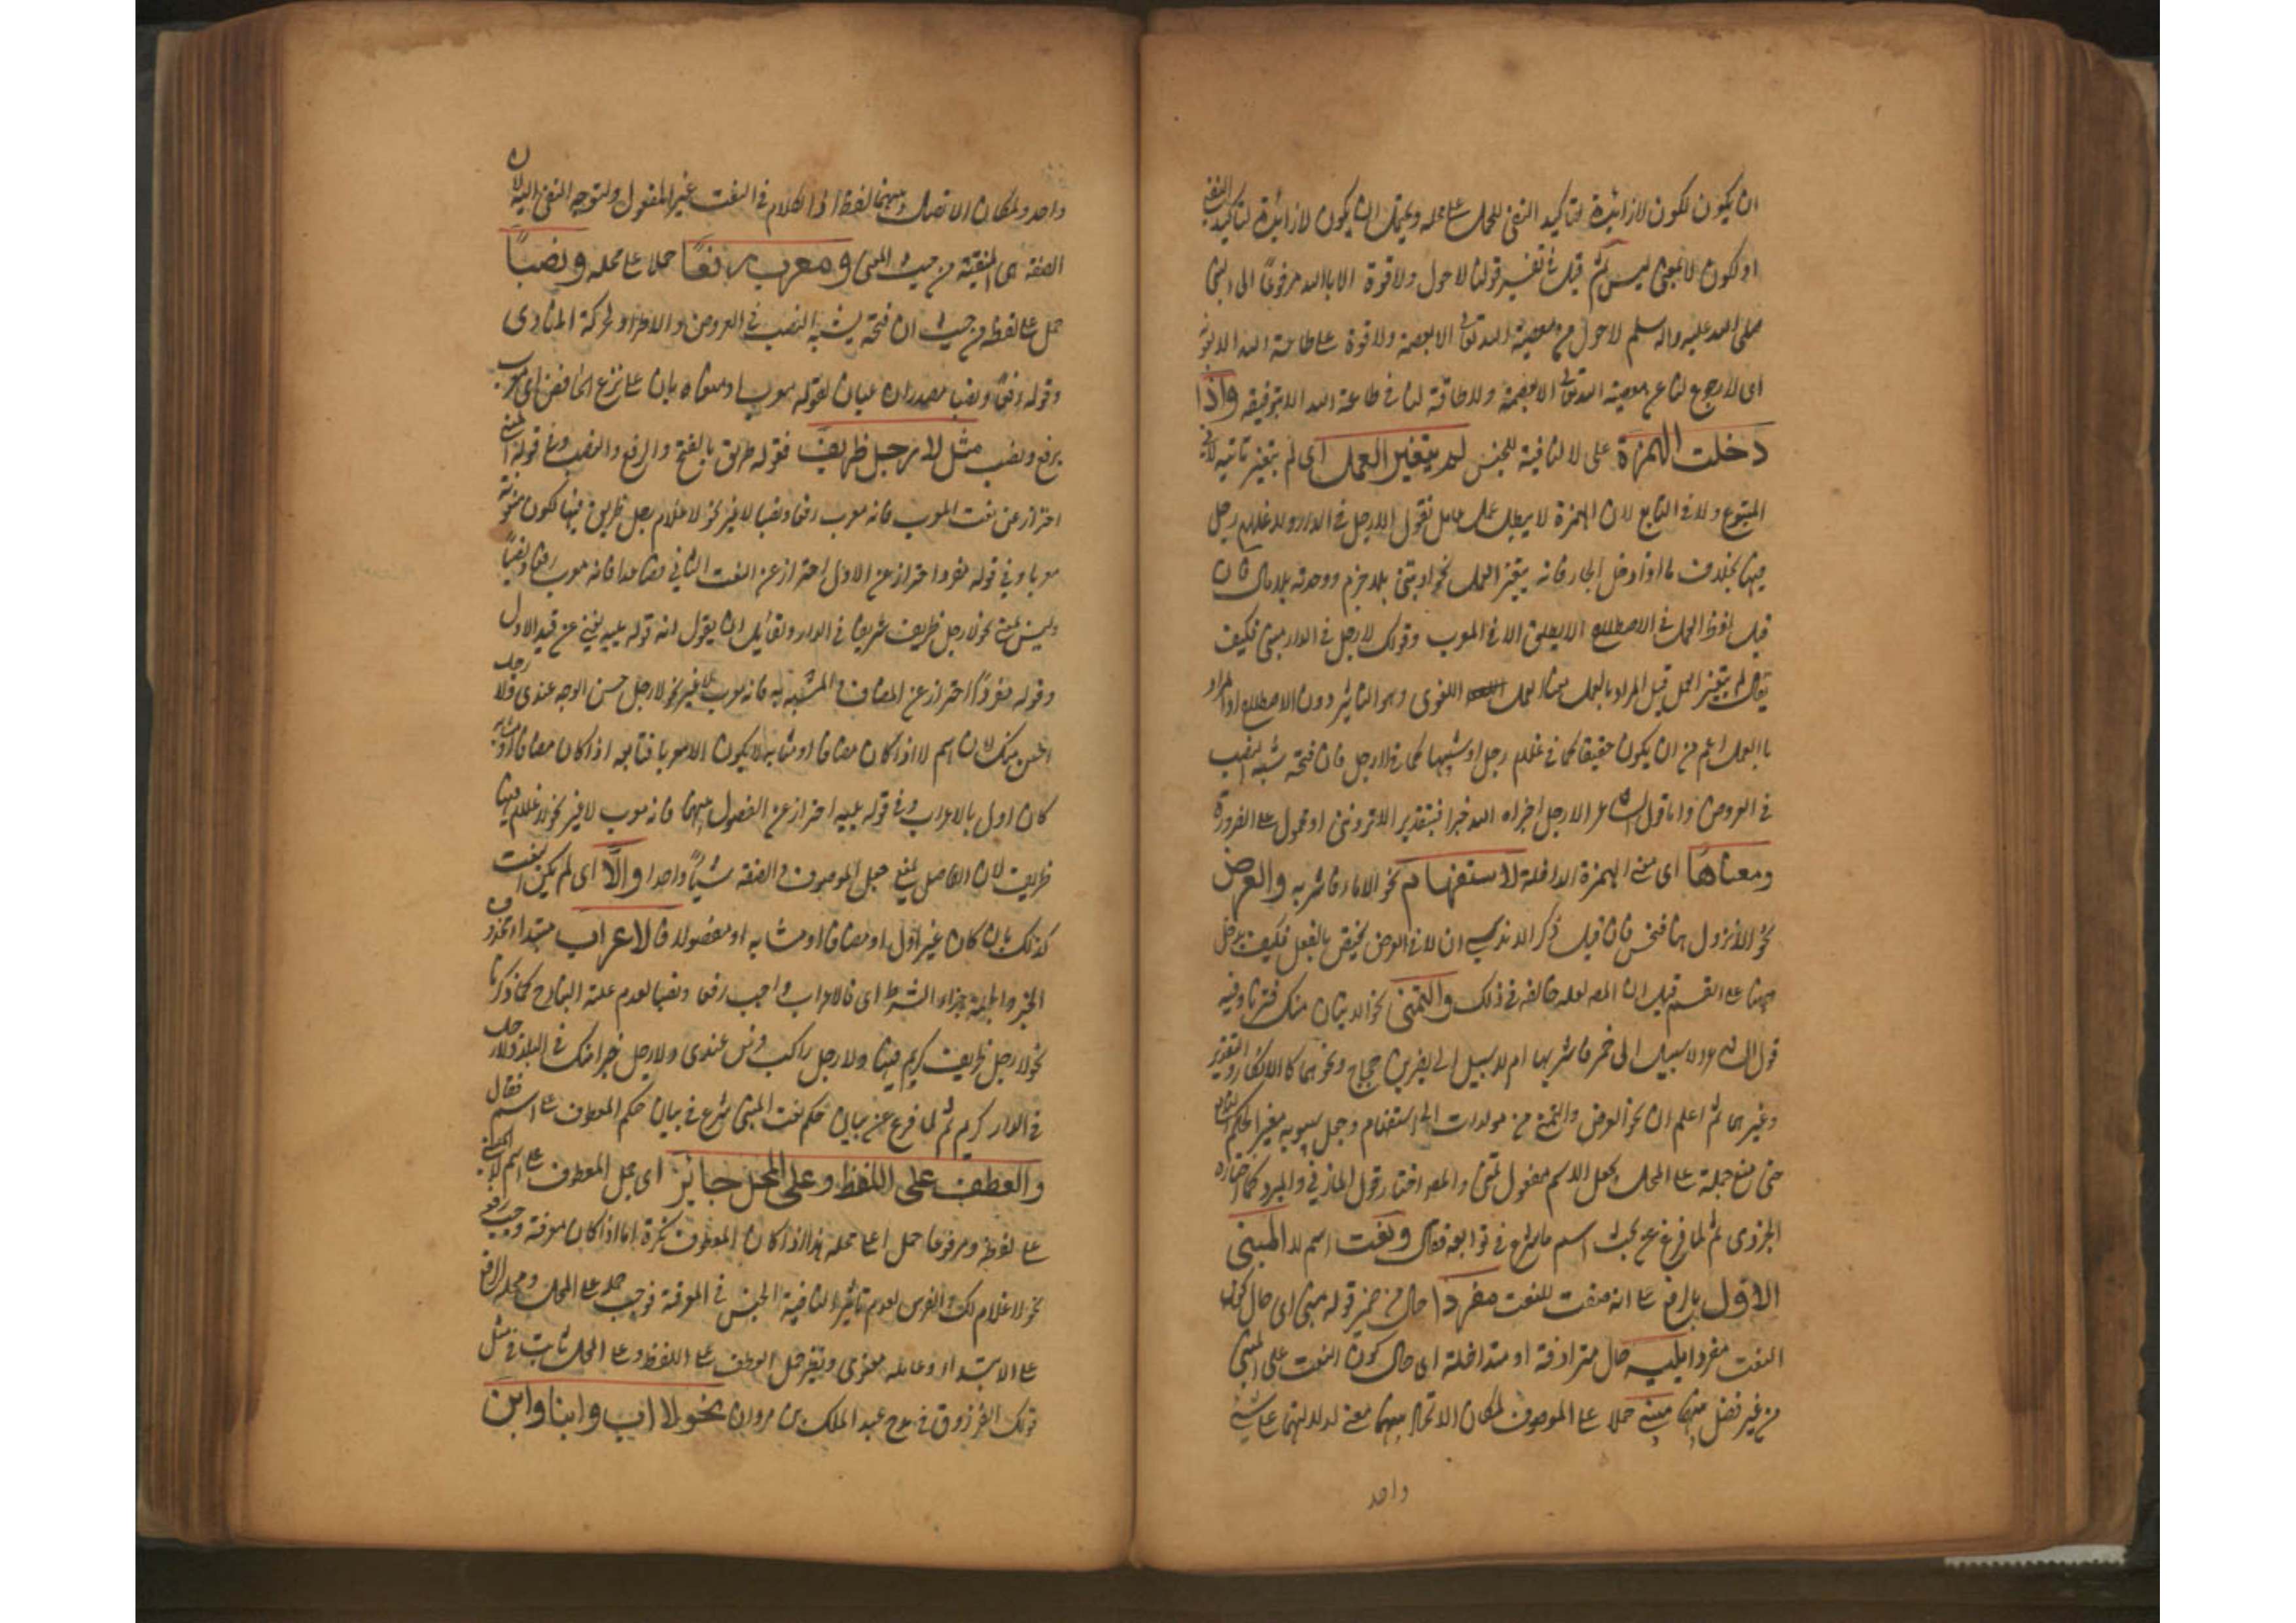 ان يكون لكون لا زائدة لتأكيد النفى للحمل على محله ويحتمل ان يكون لا زائدة لتأكيد النفى
او لكون لا بمعنى ليس ثم قيل فى تفسير قولنا لا حول ولا قوة الا بالله مرفوعا الى النبى
صلى الله عليه واله وسلم لا حول عن معصية الله تعالى الا بعصمته ولا قوة على طاعة الله الا بتوفيقه
اى لا رجوع لنا عن معصية الله تعالى الا بعصمته ولا طاقة لنا فى طاعة الله الا بتوفيقه واذا
دخلت الهمزة على لا لنافية للجنس لم يتغير العمل اى لم يتغير تأثيره لا فى
المتبوع ولا فى التابع لان الهمزة لا يبطل عمل عامل تقول الا رجل فى الدار والا غلام رجل
فيها بخلاف ما اذا دخل الجار فانه يتغير العمل نحو اذيتنى بلا جرم ووجدته بلا مال فان
قيل لفظ العمل فى الاصطلاح لا يطلق الا فى المعرب وقولك لا رجل فى الدار مبنى فكيف
يقال لم يتغير العمل قيل المراد بالعمل هنا العمل اللغوى وهو التاثير دون الاصطلاح او المراد
بالعمل اعم من ان يكون حقيقا كما فى غلام رجل او شبيها كما فى لا رجل فان فتحه شبه النصب
فى العروض واما قول الشاعر الا رجل اجزاه الله خيرا فبتقدير الا تروننى او محمول على الضرورة
ومعناها اى معنى الهمزة الداخلة لاستفهام نحو الا ماء فاشربه والعرض
نحو الا نزول بنا فنحسن فان قيل ذكر الاندلسى ان لا فى العرض يختص بالفعل فكيف يدخل
ههنا على الاسم قيل ان المص لعله خالفه فى ذلك والتمنى نحو الا اتيان منك فترنا وفيه
قول الشاعر الا سبيل الى خمر فاشربها ام لا سبيل الى نصر بن حجاج ونحوهما كالانكار والتقدير
وغيرهما ثم اعلم ان نحو العرض والتمنى من مولدات الاستفهام وجعل سيبويه مغيرا لحكم
حتى منع حمله على المحل بجعل الاسم مفعول تمنى والمص اختار قول المازنى والمبرد كما اختاره
الجزولى ثم لما فرغ عن بحث اسم ما شرع فى توابعه فقال ونعت اسم لا المبنى
الاول بالرفع على انه صفت للنعت مفردا حال من ضمير قوله مبنى اى حال كون
النعت مفردا يليه حال مترادفة او متداخلة اى حال كون النعت على المبنى
من غير فصل بينهما مبنى حملا على الموصوف لمكان الاتحاد بينهما معنى لدلالتهما على شئ
واحد
واحد ولمكان الاتصال بينهما لفظا اذ الكلام فى النعت غير المفصول ولتوجه النفى اليه لان
الصفة هى المنفية من حيث المعنى ومعرب رفعا حملا على محله ونصبا
حمل على لفظه من حيث ان فتحه يشبه النصب فى العروض والاطراد لحركة المنادى
وقوله رفعا ونصبا مصدران عيان لقوله معرب او منصوبان على نزع الخافض اى معرب
برفع ونصب مثل لا رجل ظريف فقوله ظريف بالفتح والرفع والنصب وفى قوله المبنى
احتراز عن نعت المعرب فانه معرب رفعا ونصبا لا غير نحو لا غلام رجل ظريف فيها لكون متبوعه
معربا وفى قوله مفردا احتراز عن الاول احتراز عن النعت الثانى فصاعدا فانه معرب رفعا ونصبا
وليس بمبنى نحو لا رجل ظريف شريفا فى الدار ولقائل ان يقول ان قوله يليه يغنى عن قيد الاول
وقوله مفردا احتراز عن المضاف والمشبه به فانه معرب لا غير نحو لا رجل حسن الوجه عندى ولا رجل
احسن منك لان اسم لا اذا كان مضافا او مشابها لا يكون الا معربا فتابعه اذا كان مضافا او مشابها
كان اولى بالاعراب وفى قوله يليه احتراز عن الفصول بينهما فانه معرب لا غير نحو لا غلام فيها
ظريف لان الفاصل يمنع جعل الموصوف والصفة شيئا واحدا والا اى لم يكن النعت
كذلك بان كان غير اول او مضافا او مشابه او مفصولا فالاعراب مبتدا محذوف
الخبر والجملة جزاء الشرط اى فالاعراب واجب رفعا ونصبا لعدم علة البناء كما ذكرنا
نحو لا رجل ظريف كريم فيها ولا رجل راكب فرس عندى ولا رجل خيرا منك فى البلد ولا رجل
فى الدار كريم ثم لما فرغ عن بيان حكم نعت المبنى شرع فى بيان حكم المعطوف على اسم فقال
والعطف على اللفظ وعلى المحل جايز اى جعل المعطوف على اسم لا المبنى
على لفظه ومرفوعا حملا على محله هذا اذا كان المعطوف نكرة اما اذا كان معرفة وجب رفعه
نحو لا غلام لك والفرس لعدم تأثير لا لنافية الجنس فى المعرفة فوجب حمله على المحل ومحله الرفع
على الابتداء وعامله معنوى ونظير حمل العطف على اللفظ وعلى المحل ثابت فى مثل
قولك الفرزدق فى مدح عبد الملك بن مروان نحو لا اب وابنا وابن